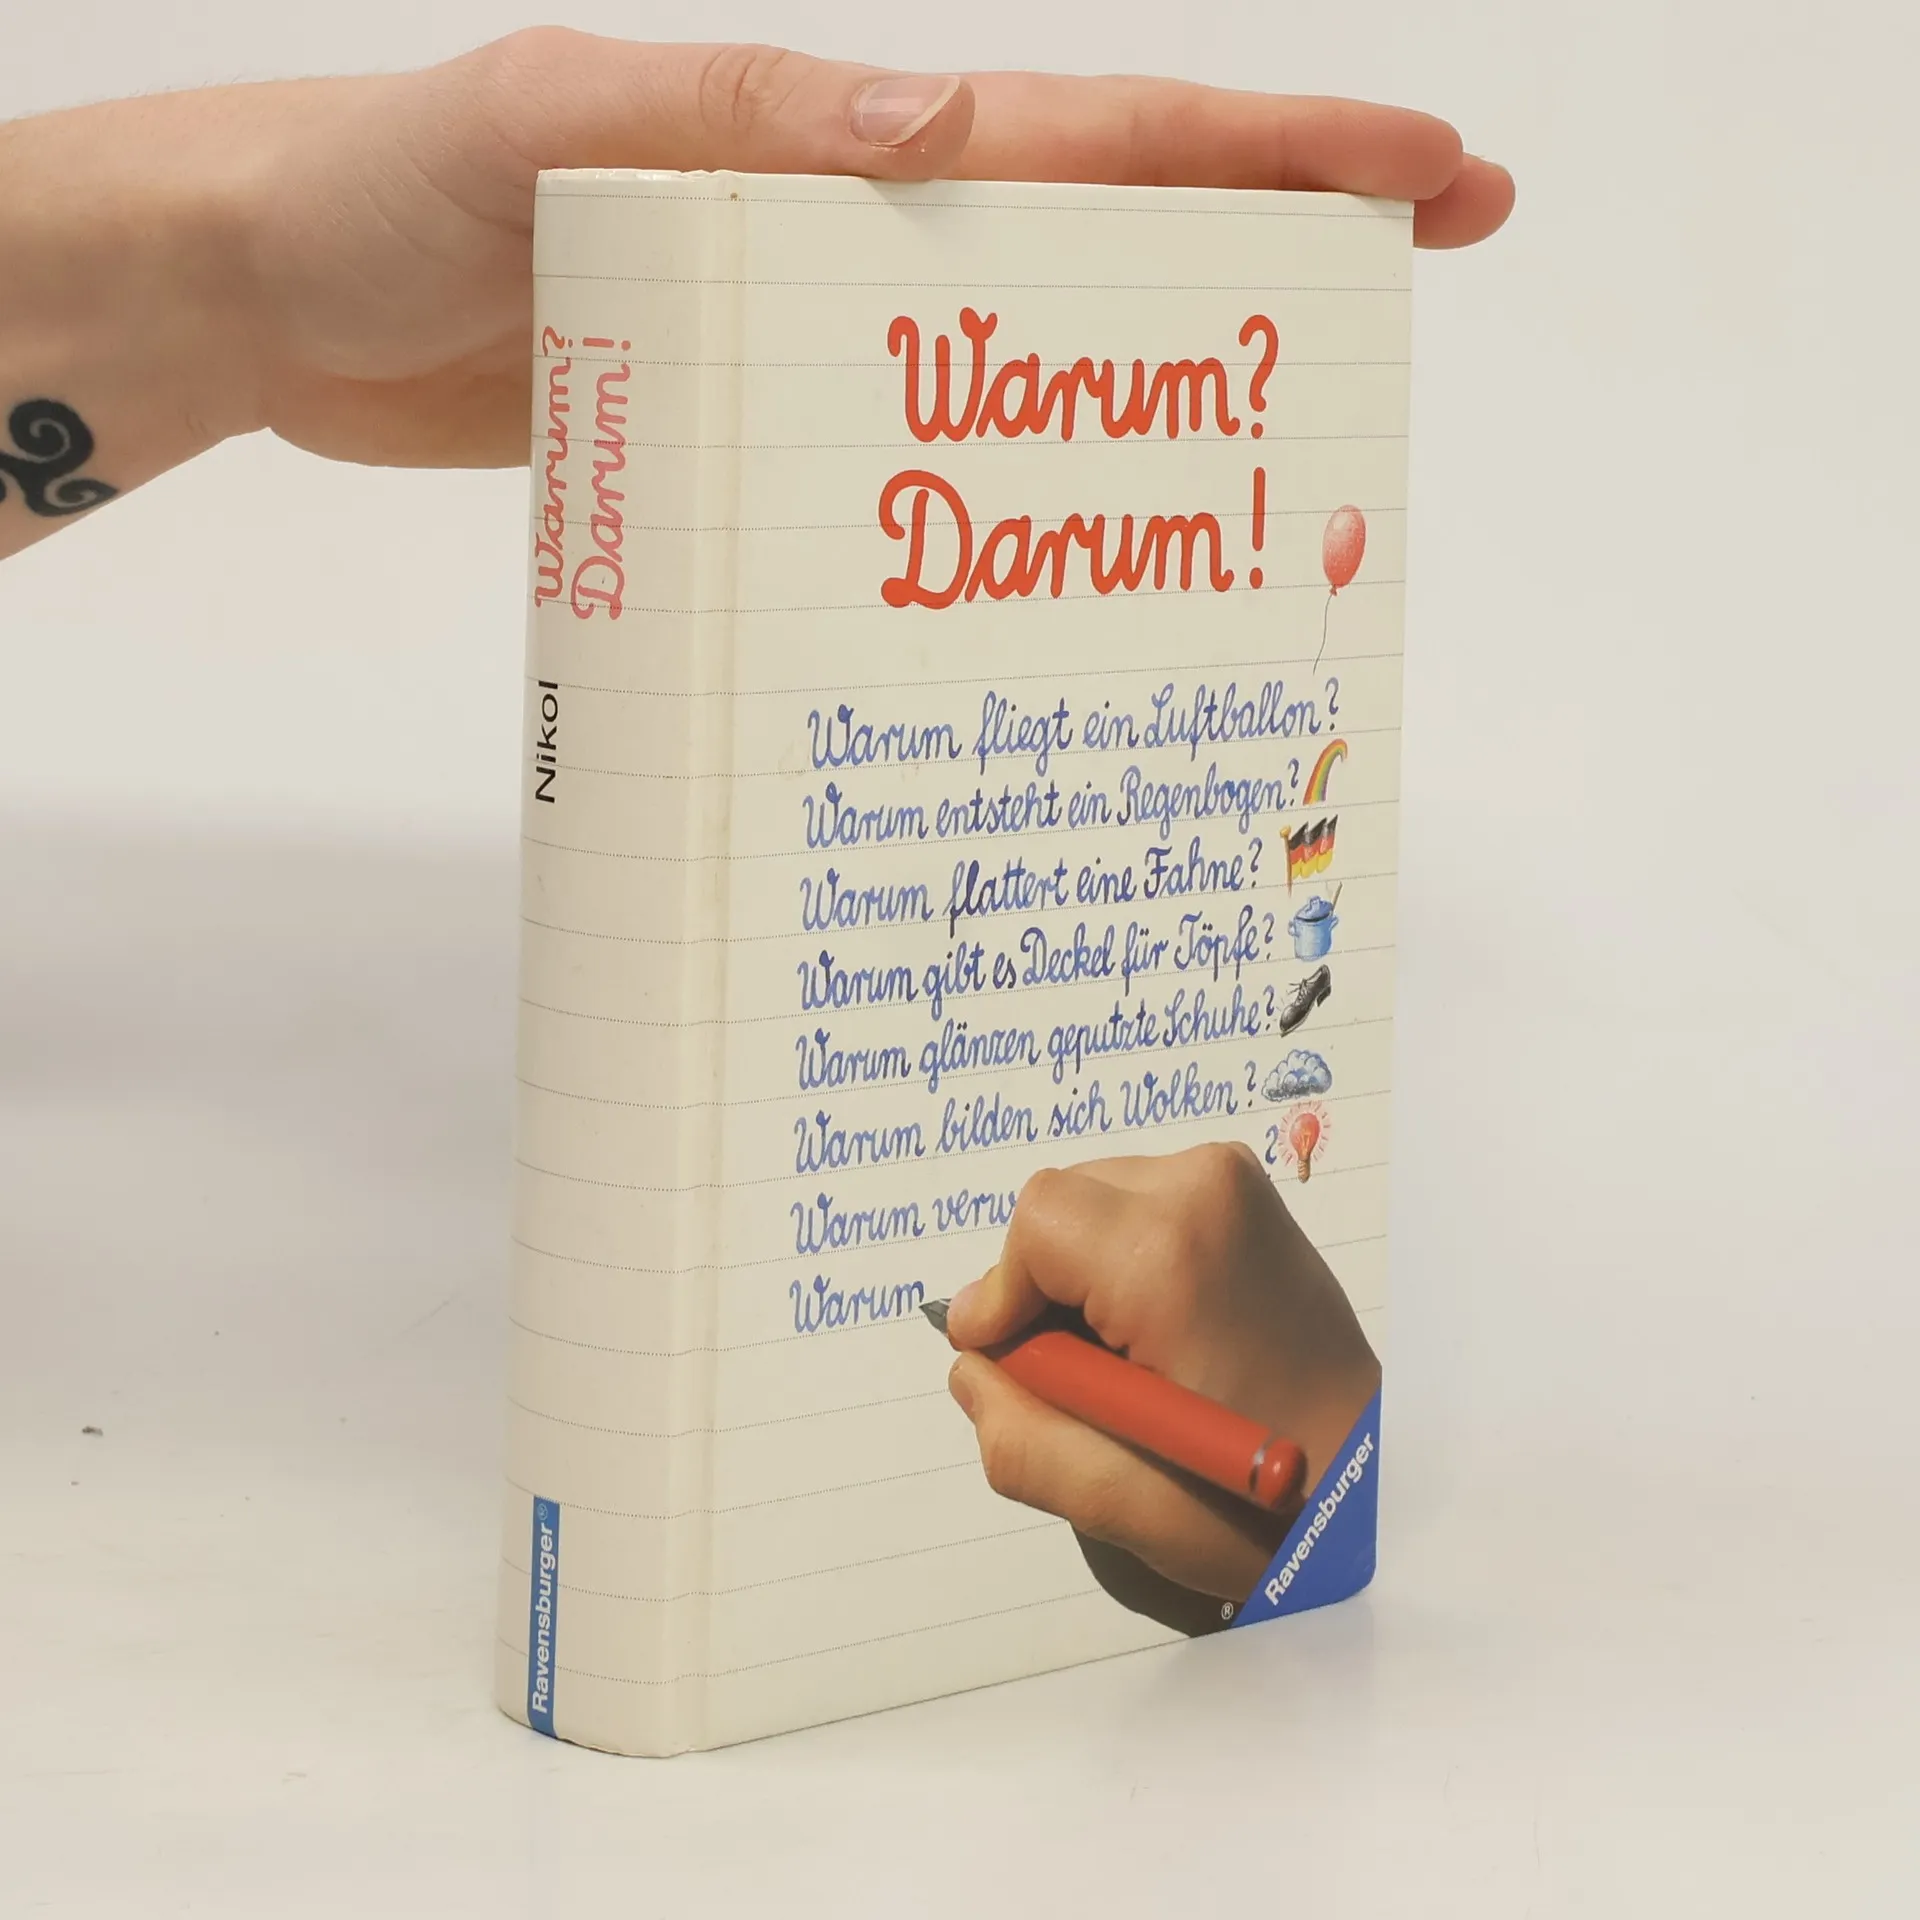 Warum?
Darum!
Nikol
Ravensburger®
Warum?
Darum!
Warum fliegt ein Luftballon?
Warum entsteht ein Regenbogen?
Warum flattert eine Fahne?
Warum gibt es Deckel für Töpfe?
Warum glänzen geputzte Schuhe?
Warum bilden sich Wolken?
Warum verw ?
Warum
Ravensburger
®